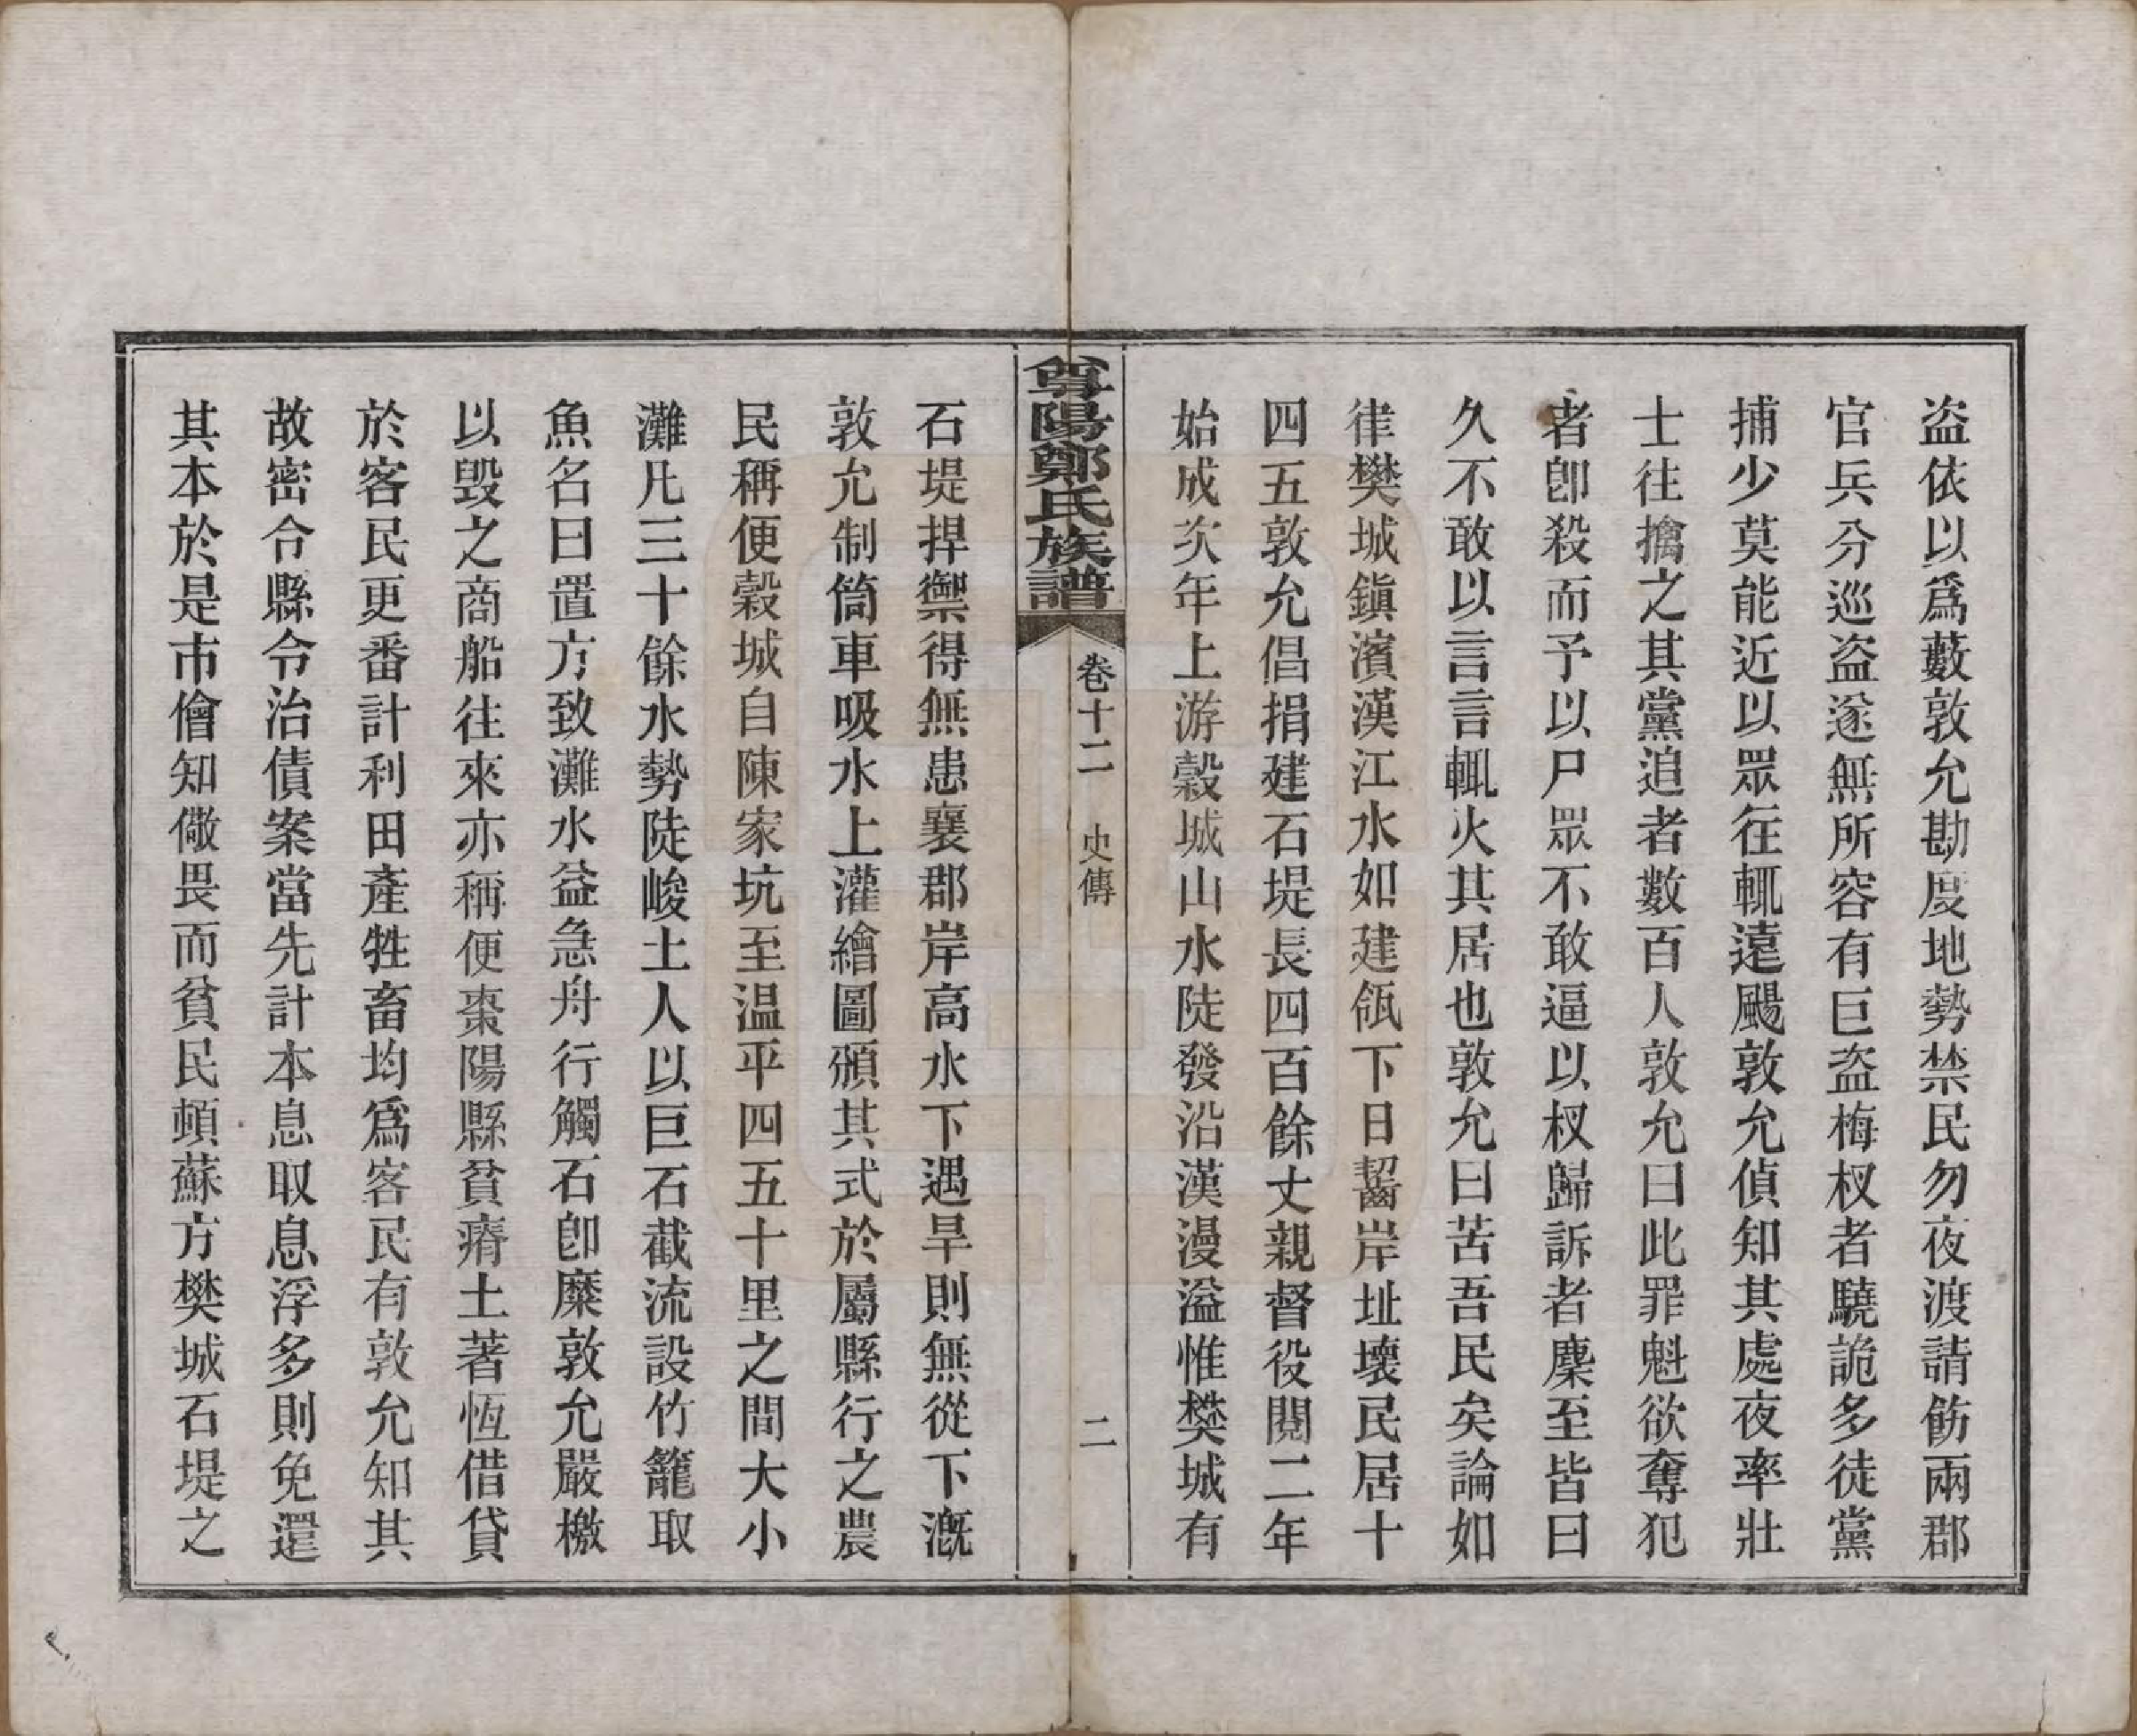 盜依以爲藪敦允勘度地勢禁民勿夜渡請飭兩郡
官兵分巡盜遂無所容有巨盜梅杈者驍詭多徒黨
捕少莫能近以眾往輒遠颺敦允偵知其處夜率壯
士往擒之其黨追者數百人敦允曰此罪魁欲奪犯
者卽殺而予以尸眾不敢逼以杈歸訴者麇至皆曰
久不敢以言言輒火其居也敦允曰苦吾民矣論如
律樊城鎭濱漢江水如建瓴下日齧岸址壞民居十
四五敦允倡捐建石堤長四百餘丈親督役閱二年
始成次年上游穀城山水陡發沿漢漫溢惟樊城有
尊陽鄭氏族譜
卷十二 史傳
二
石堤捍禦得無患襄郡岸高水下遇旱則無從下漑
敦允制筒車吸水上灌繪圖頒其式於屬縣行之農
民稱便穀城自陳家坑至温平四五十里之間大小
灘凡三十餘水勢陡峻土人以巨石截流設竹籠取
魚名曰置方致灘水益急舟行觸石卽糜敦允嚴檄
以毀之商船往來亦稱便棗陽縣貧瘠土著恆借貸
於客民更番計利田產牲畜均爲客民有敦允知其
故密令縣令治債案當先計本息取息浮多則免還
其本於是市儈知儆畏而貧民頓蘇方樊城石堤之